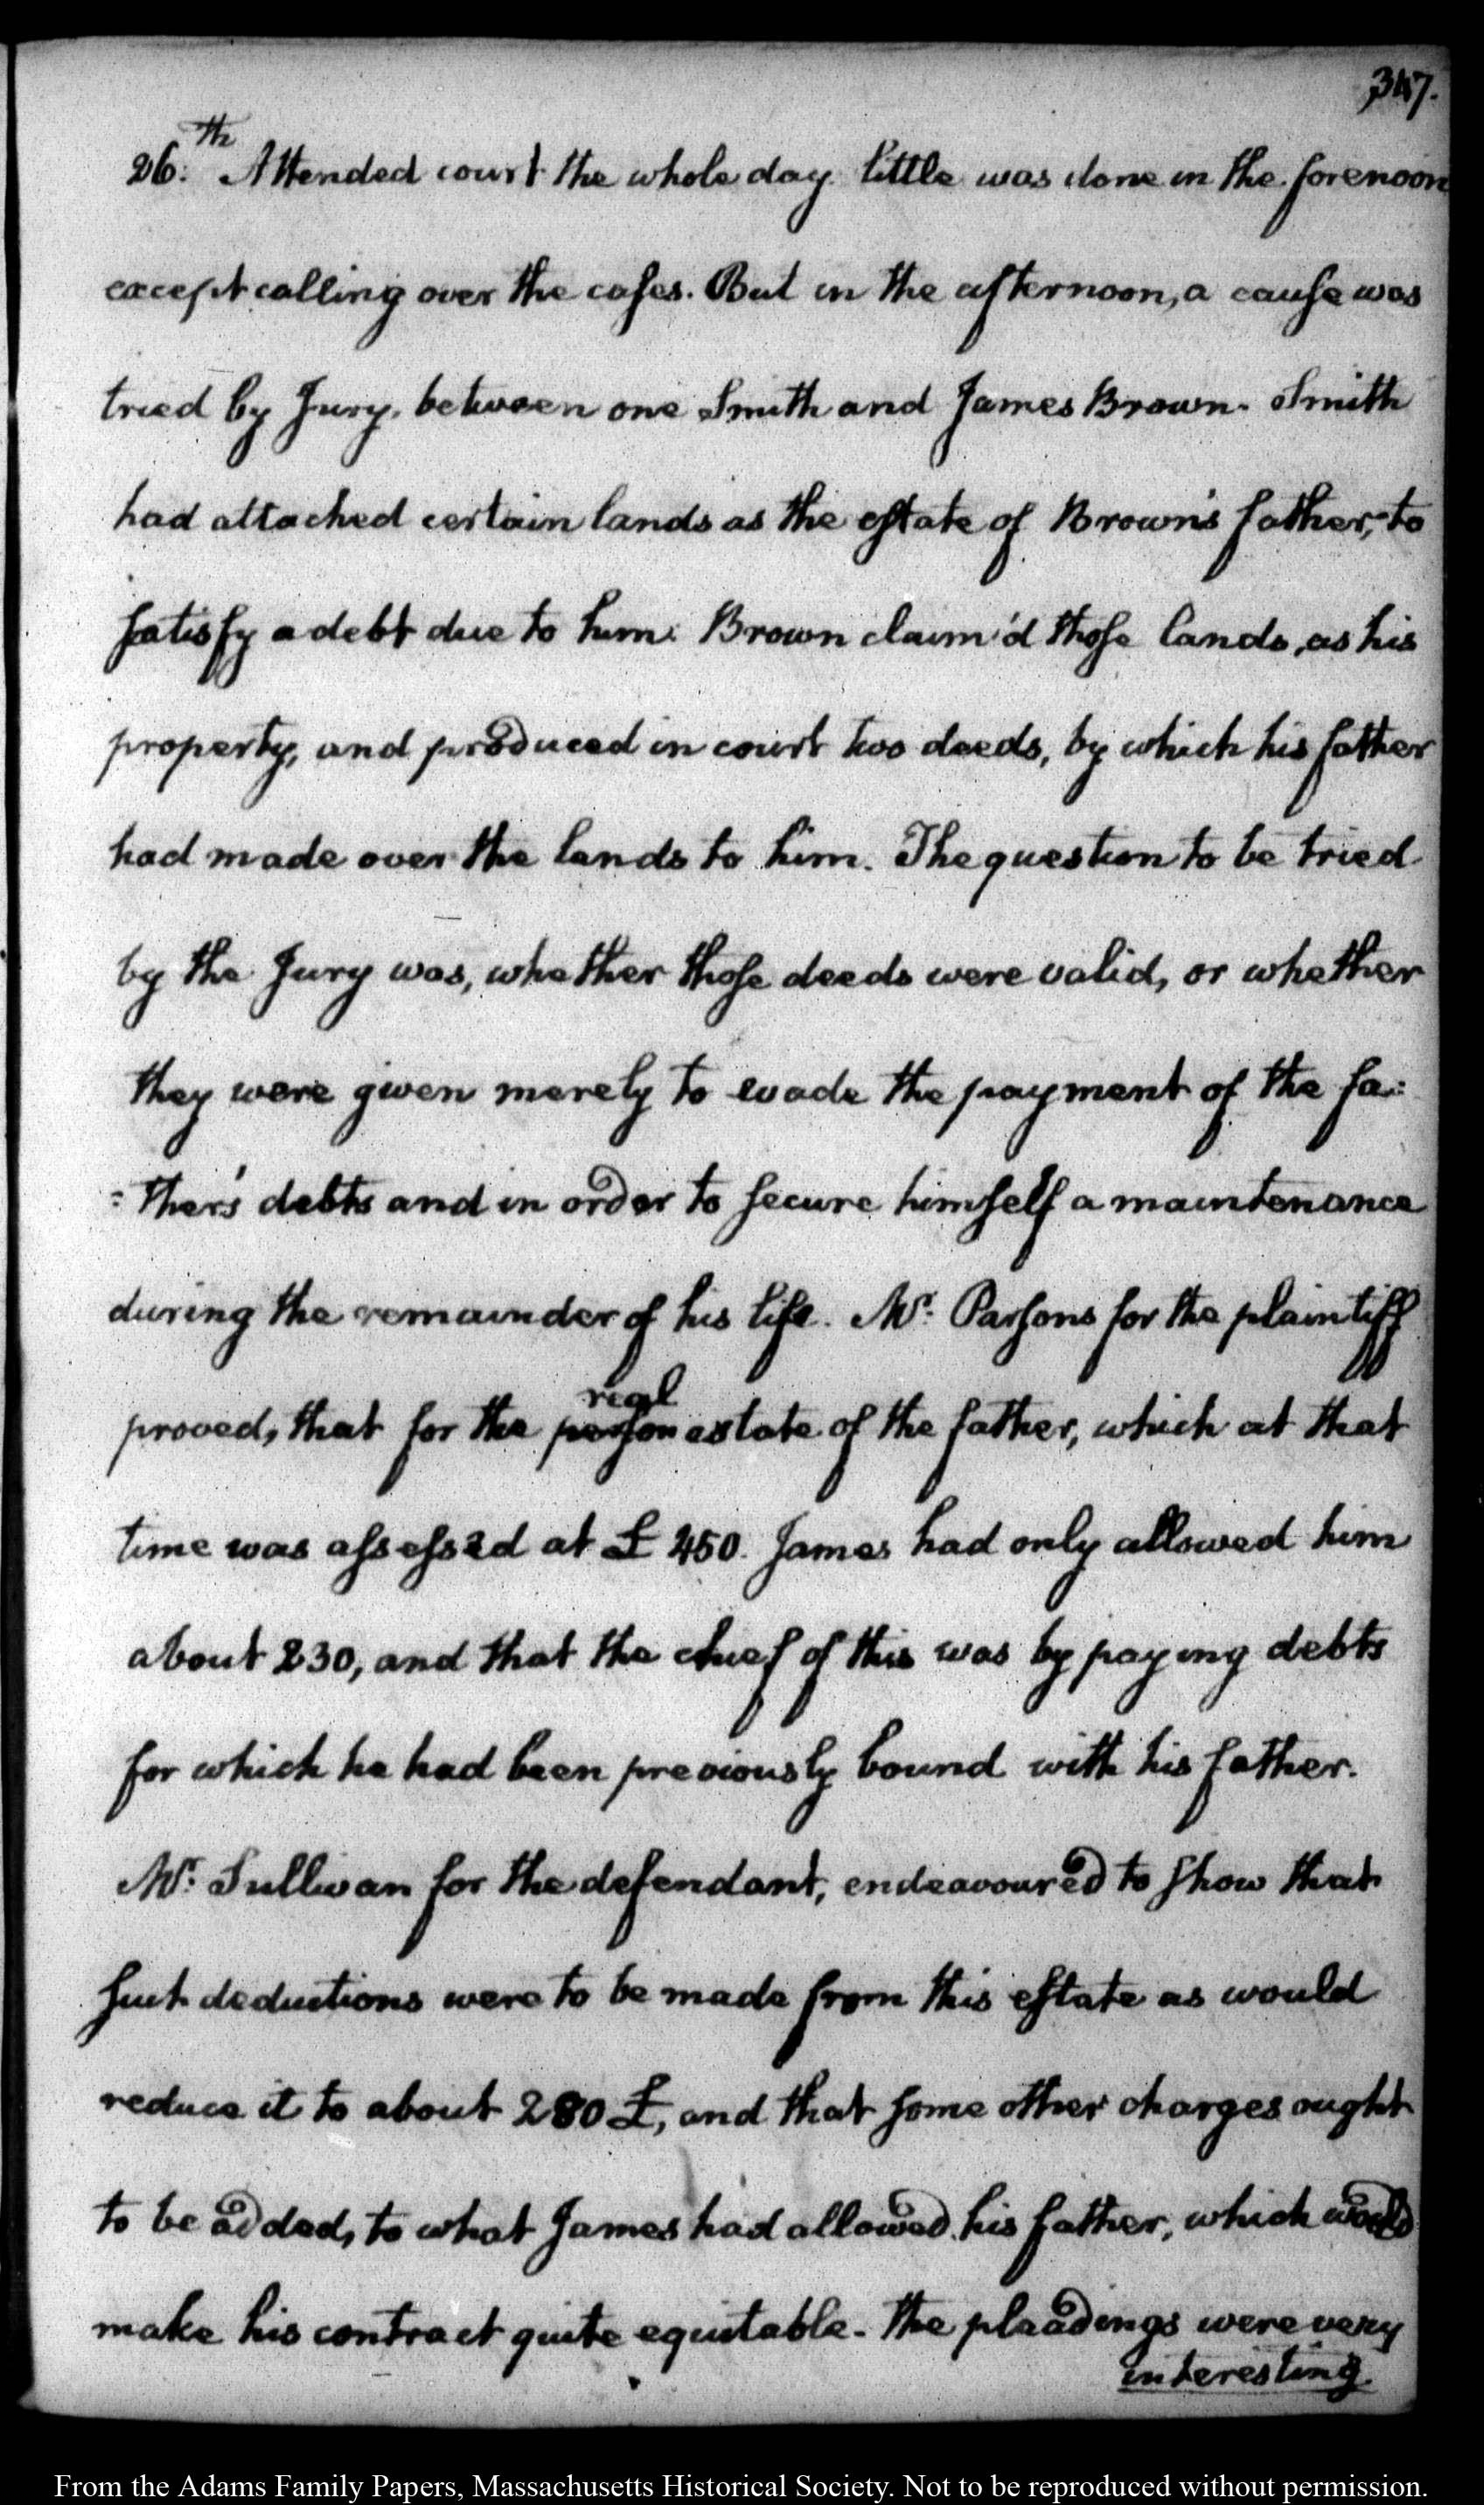 347.
26.th Attended court the whole day. little was done in the forenoon
except calling over the cases. But in the afternoon, a cause was
tried by Jury, between one Smith and James Brown. Smith
had attached certain lands as the estate of Brown's father, to
satisfy a debt due to him. Brown claim'd those lands, as his
property, and produced in court two deeds, by which his father
had made over the lands to him. The question to be tried
by the Jury was, whether those deeds were valid, or whether
they were given merely to evade the payment of the fa:
:ther's debts and in order to secure himself a maintenance
during the remainder of his life. Mr. Parsons for the plaintiff
real
proved, that for the person estate of the father, which at that
time was assessed at £ 450. James had only allowed him
about 230, and that the chief of this was by paying debts
for which he had been previously bound with his father.
Mr. Sullivan for the defendant, endeavoured to show that
such deductions were to be made from this estate as would
reduce it to about 280 £, and that some other charges ought
to be added, to what James had allowed his father, which would
make his contract quite equitable. The pleadings were very
interesting.
From the Adams Family Papers, Massachusetts Historical Society. Not to be reproduced without permission.